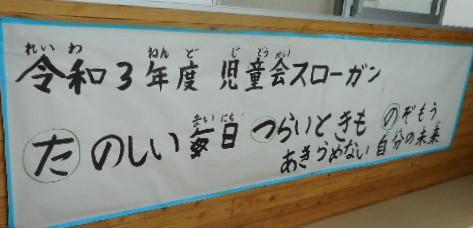 れいわ ねんど じどうかい
令和3年度 児童会スローガン
まいにち
たのしい毎日 つらいときも のぞもう
あきらめない 自分の未来